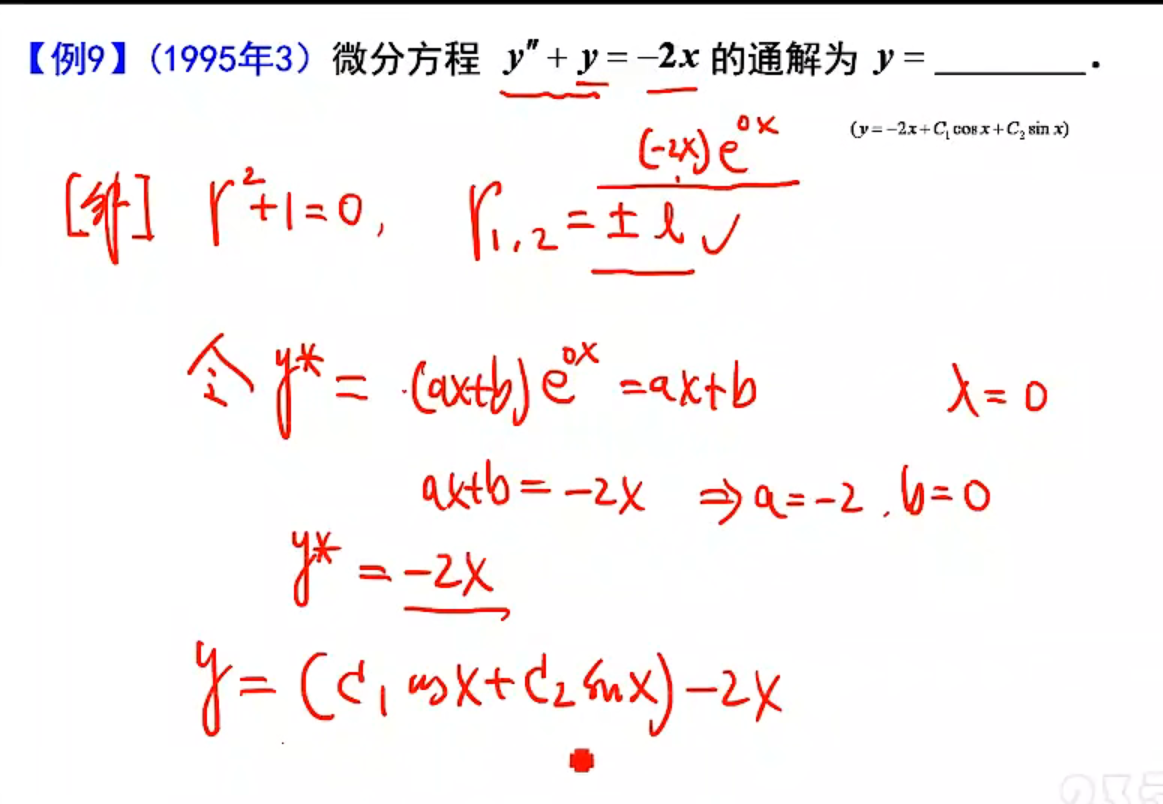 【例9】(1995年3) 微分方程 y″ + y = −2x 的通解为 y = ________ .
(y = −2x + C₁ cos x + C₂ sin x)
(-2x) e^{0x}
[解] r² + 1 = 0, r₁,₂ = ± i ✓
令 y* = (ax+b) e^{0x} = ax+b λ = 0
ax+b = −2x ⇒ a = −2 , b = 0
y* = −2x
y = (C₁ cos x + C₂ sin x) − 2x